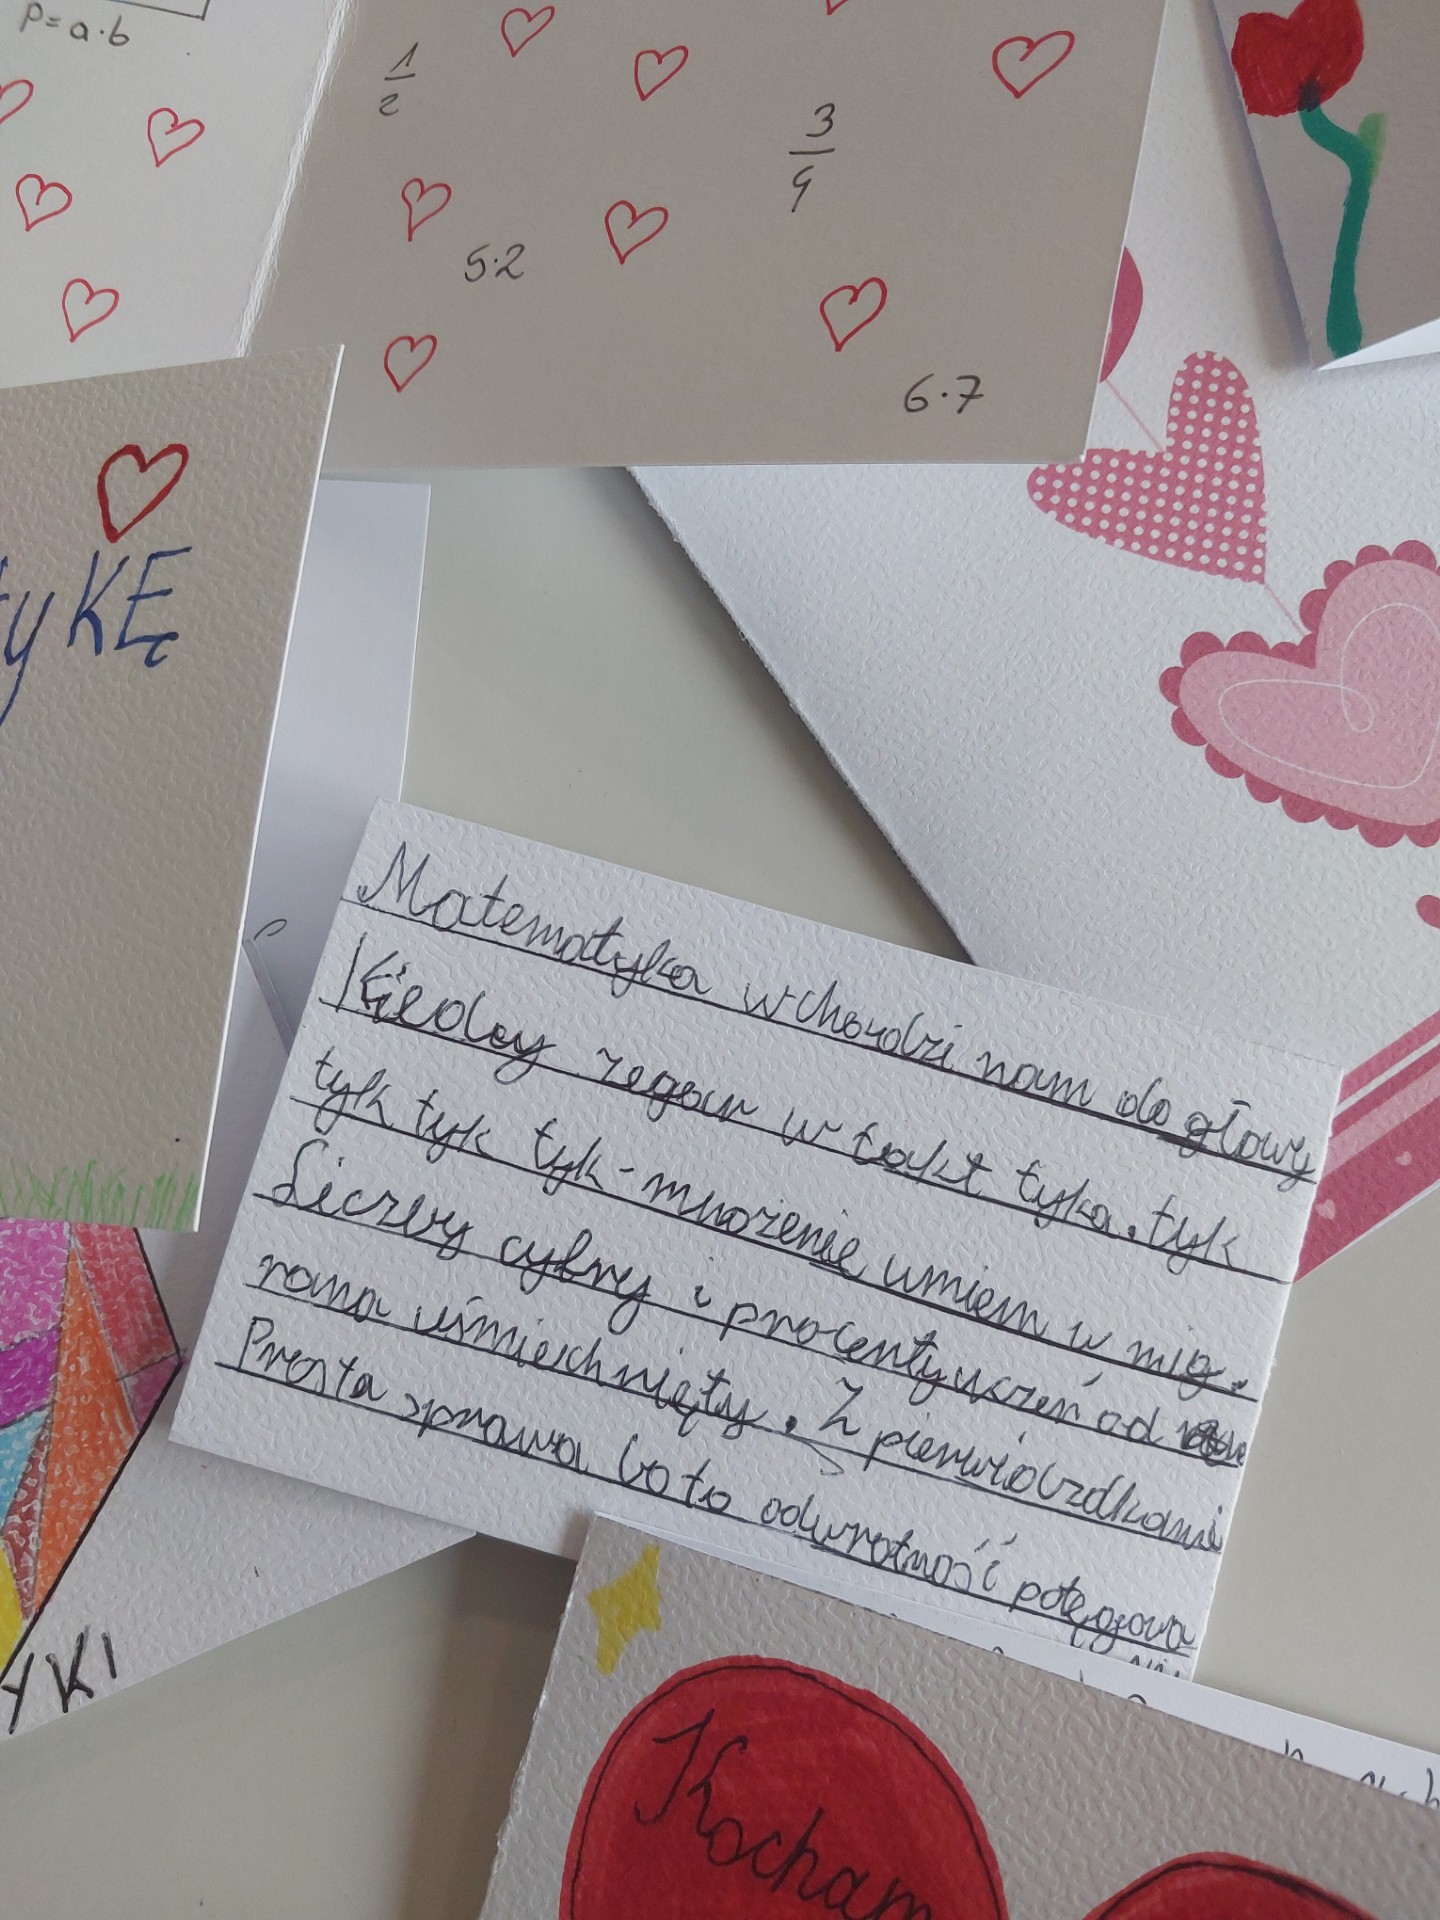 P=a·b
1/2
3/4
5·2
6·7
tyKĘ
Matematyka wchodzi nam do głowy
Kiedy zegar w takt tyka. tyk
tyk tyk tyk - mnożenie umiem w mig.
Liczby cyfry i procenty uczeń od
rana uśmiechnięty. Z pierwiastkami
Prosta sprawa bo to odwrotność potęgowa
YKI
Kocham